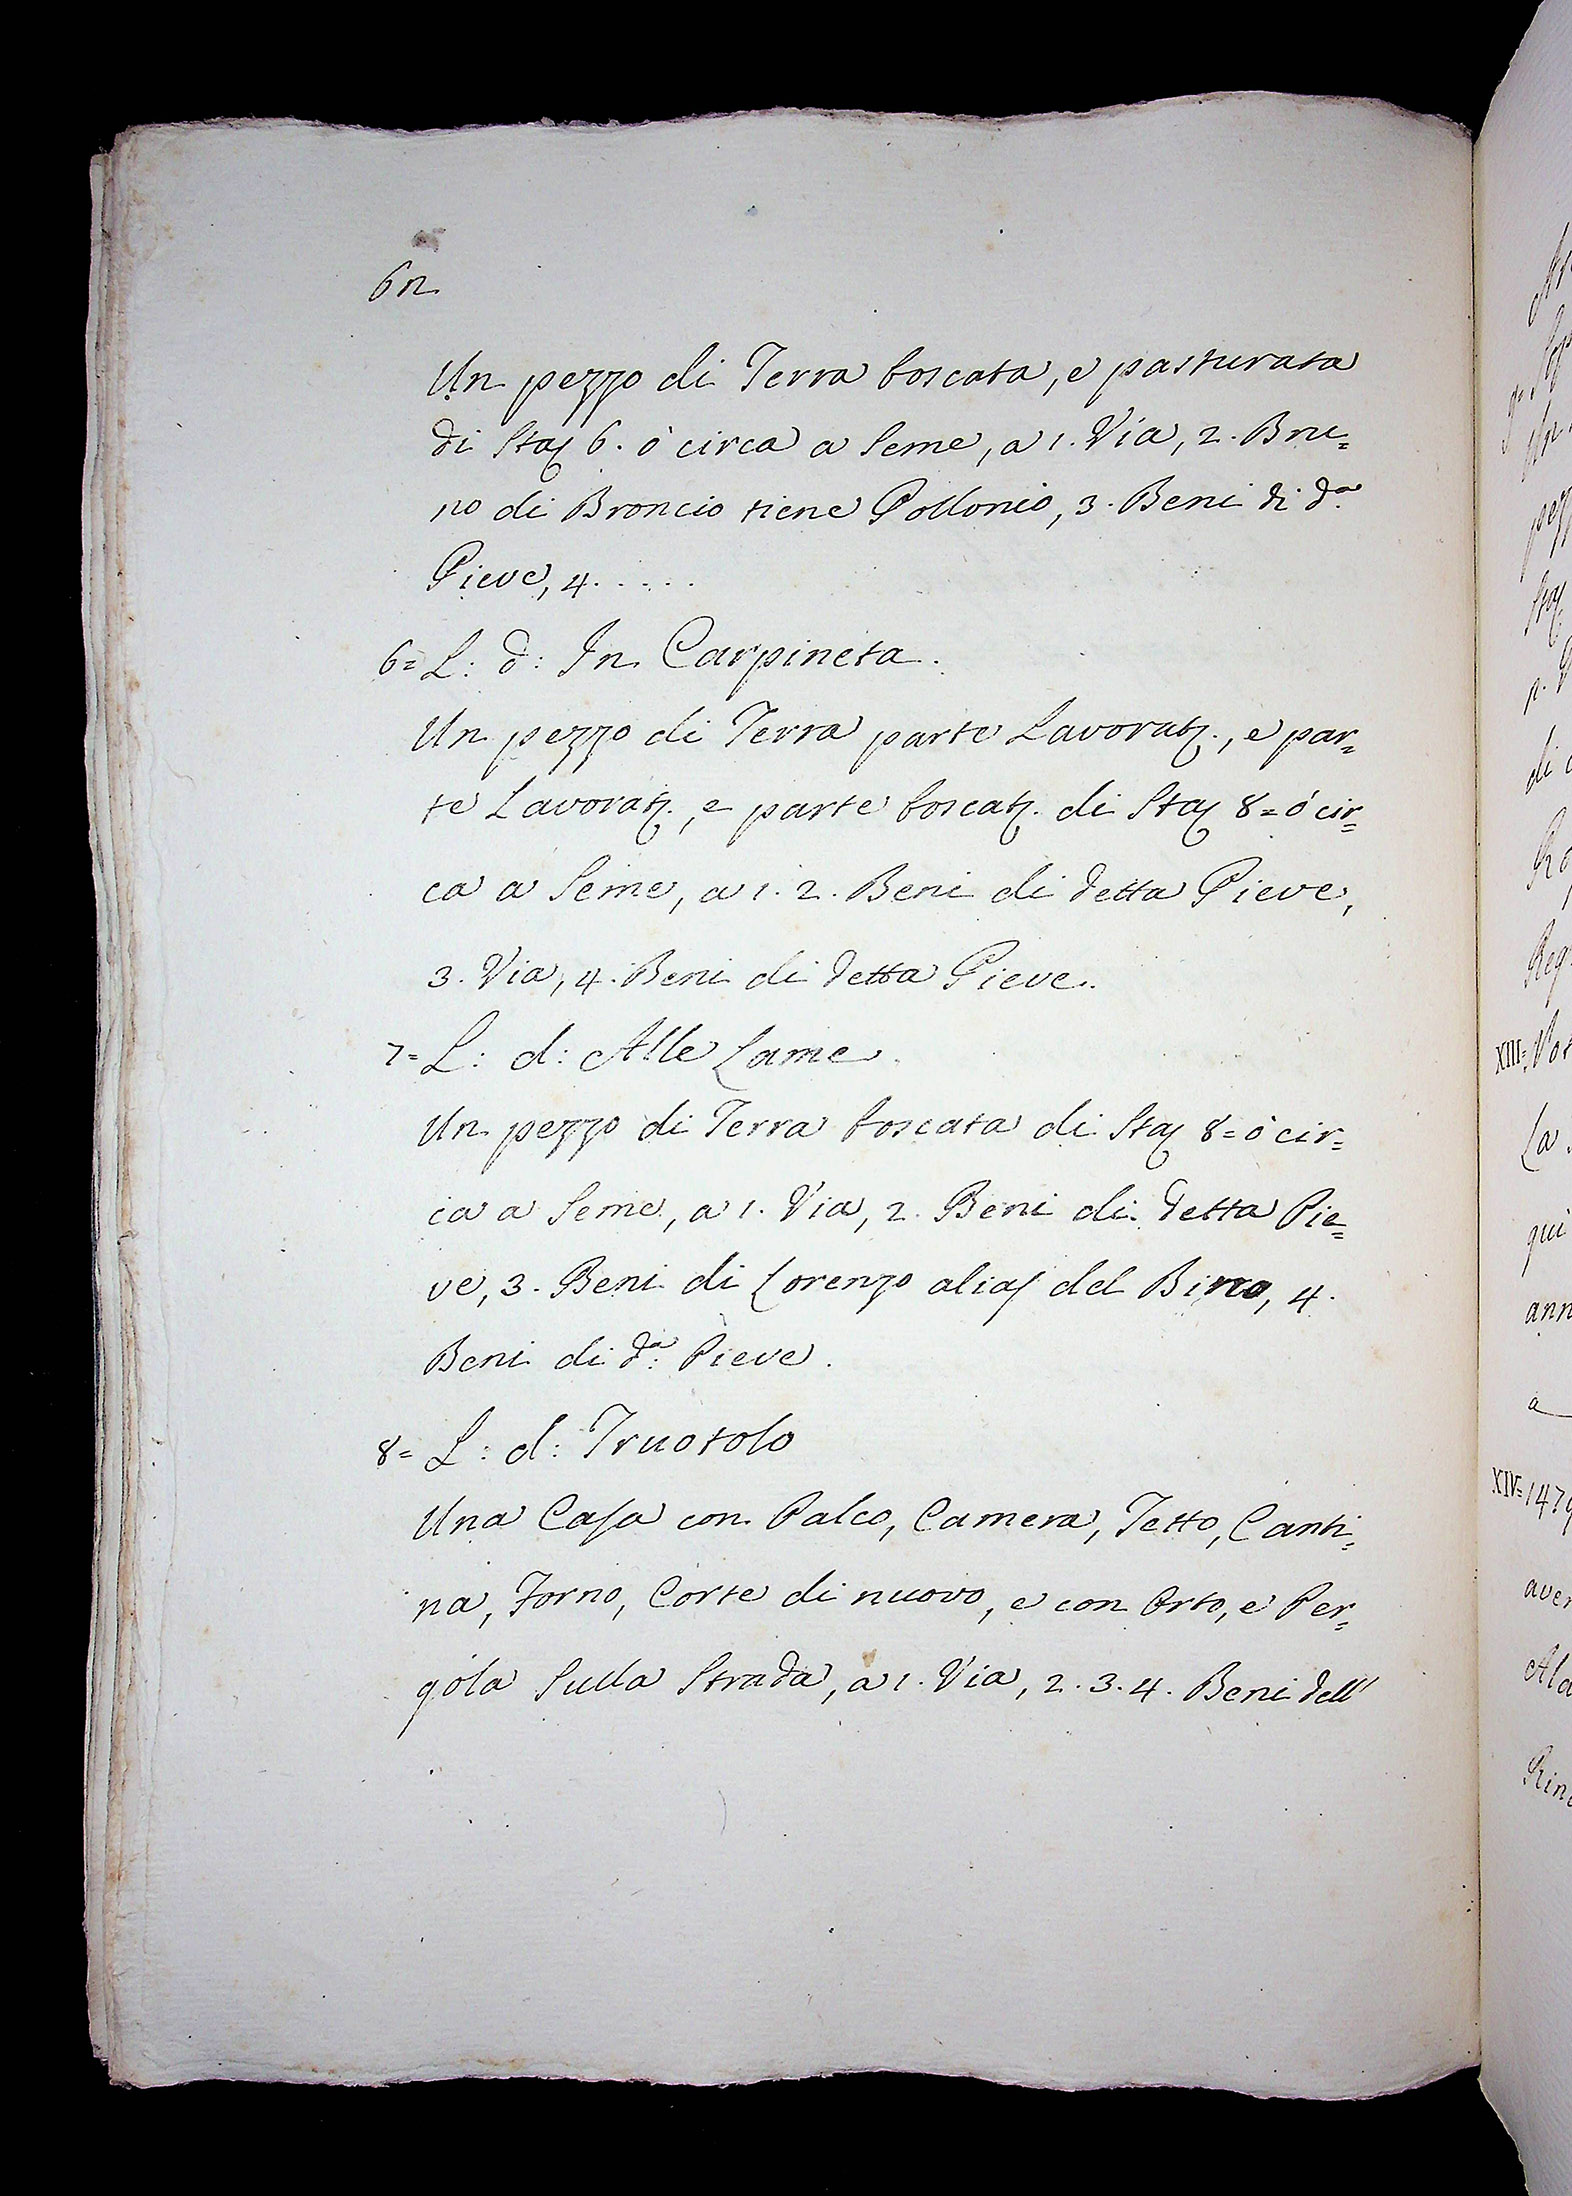 62
Un pezzo di Terra boscata, e pasturata
di Staj 6. ò circa a Seme, a 1. Via, 2. Bru=
no di Broncio tiene Pollonio, 3. Beni di d.ª
Pieve, 4.....
6= L: d: In Carpineta.
Un pezzo di Terra parte Lavorat.ª, e par=
te Lavorat.ª, e parte boscat.ª di Staj 8= ò cir=
ca a Seme, a 1. 2. Beni di detta Pieve,
3. Via, 4. Beni di detta Pieve.
7= L: d: Alle Lame.
Un pezzo di Terra boscata di Staj 8= ò cir=
ca a Seme, a 1. Via, 2. Beni di detta Pie=
ve, 3. Beni di Lorenzo alias del Birro, 4.
Beni di d.ª Pieve.
8= L: d: Truotolo
Una Casa con Palco, Camera, Tetto, Canti=
na, Forno, Corte di nuovo, e con Orto, e Per=
gola Sulla Strada, a 1. Via, 2. 3. 4. Beni dell'
XIII=
La
qui
ann
a
XIV= 147
aver